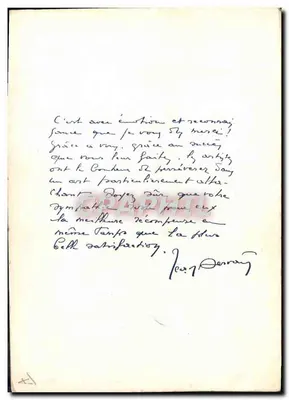 C'est avec émotion et reconnais
sance que je vous dis merci!
Grâce à vous, grâce au succès
que vous leur faites, les artistes
ont le bonheur de persévérer dans
un art particulièrement atta-
chant. Soyez sûrs que votre
sympathie est pour eux
la meilleure récompense en
même temps que la plus
belle satisfaction.
Jean